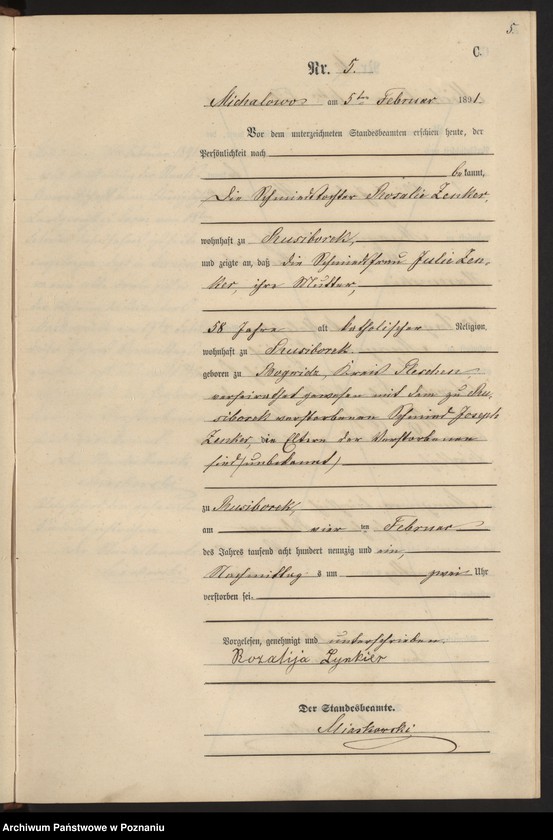 5.
C.
Nr. 5.
Michalowo am 5ten Februar 1891.
Vor dem unterzeichneten Standesbeamten erschien heute, der
Persönlichkeit nach
bekannt,
die Schmiedtochter Rosalie Zenker,
wohnhaft zu Rusiborek,
und zeigte an, daß die Schmiedfrau Julie Zen-
ker, ihre Mutter,
58 Jahre alt katholischer Religion,
wohnhaft zu Rusiborek
geboren zu Kreis Pleschen,
verheirathet gewesen mit dem zu Ru-
siborek verstorbenen Schmied Joseph
Zenker, die Eltern der Verstorbenen
sind unbekannt,
zu Rusiborek,
am vier ten Februar
des Jahres tausend acht hundert neunzig und ein,
Nachmittags um zwei Uhr
verstorben sei.
Vorgelesen, genehmigt und unterschrieben.
Rozalija Zynkier
Der Standesbeamte.
Miaskowski
Archiwum Państwowe w Poznaniu